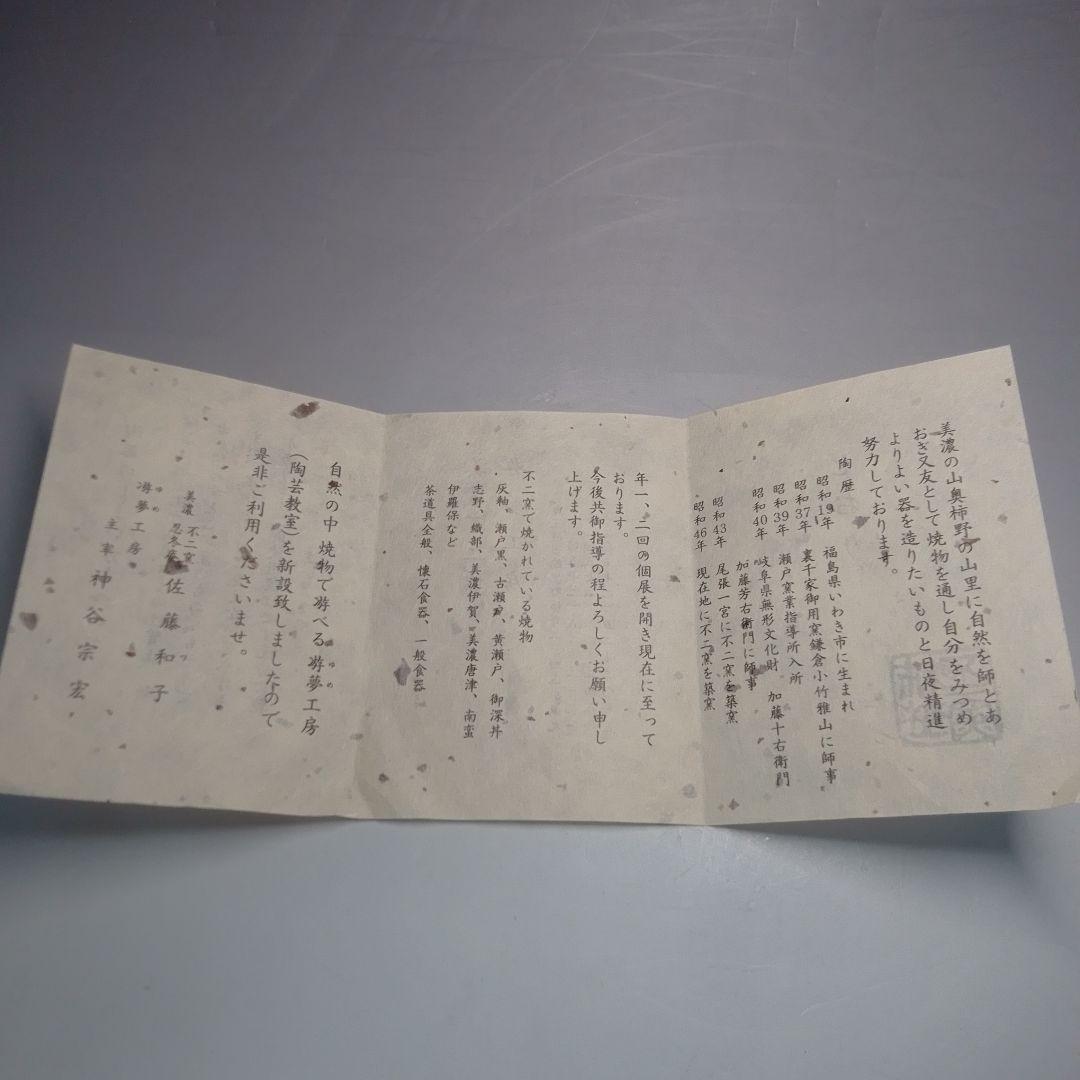 美濃の山奥柿野の山里に自然を師とあ
おぎ又友として焼物を通し自分をみつめ
よりよい器を造りたいものと日夜精進
努力しております。
陶歴
昭和19年 福島県いわき市に生まれ
昭和37年 裏千家御用窯鎌倉小竹雅山に師事
昭和39年 瀬戸窯業指導所入所
昭和40年 岐阜県無形文化財 加藤十右衛門
加藤芳右衛門に師事
昭和43年 尾張一宮に不二窯を築窯
昭和46年 現在地に不二窯を築窯
年一、二回の個展を開き現在に至って
おります。
今後共御指導の程よろしくお願い申し
上げます。
不二窯で焼かれている焼物
灰釉、瀬戸黒、古瀬戸、黄瀬戸、御深丼
志野、織部、美濃伊賀、美濃唐津、南蛮
伊羅保など
茶道具全般、懐石食器、一般食器
自然の中 焼物で遊べる 游夢工房
(陶芸教室)を新設致しましたので
是非ご利用くださいませ。
美濃 不二窯
佐藤和子
游夢工房
主宰 神谷宗宏